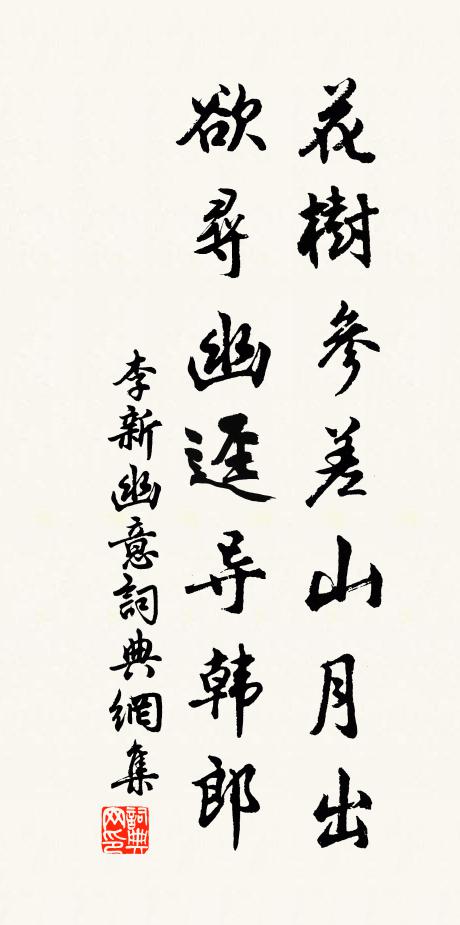 花樹參差山月出
欲尋幽逕导韩郎
李新幽意詞典網集
詞典网印